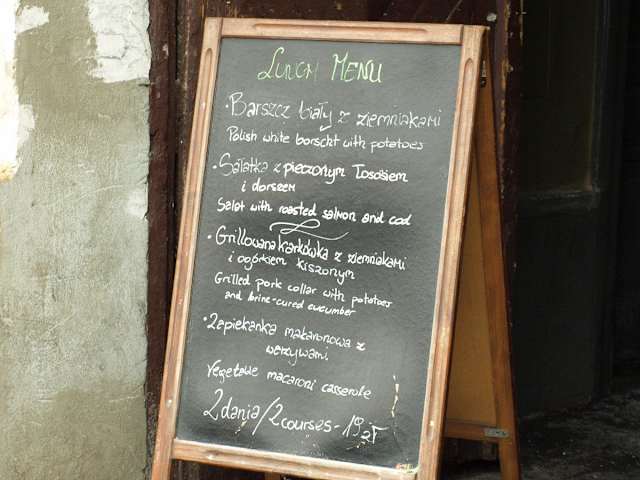 Lunch Menu
• Barszcz biały z ziemniakami
Polish white borscht with potatoes
• Sałatka z pieczonym łososiem
i dorszem
Salat with roasted salmon and cod
• Grillowana karkówka z ziemniakami
i ogórkiem kiszonym
Grilled pork collar with potatoes
and brine-cured cucumber
• Zapiekanka makaronowa z
warzywami
Vegetable macaroni casserole
2 dania / 2 courses - 19 zł